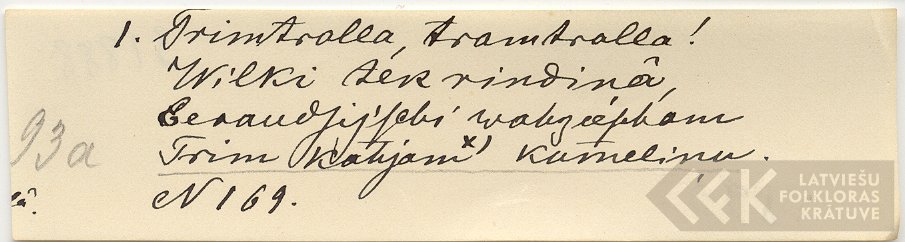 1. Trimtralla, tramtralla!
Wilki ték rindinâ,
Eeraudsijschi wahzéescham
93a
Trim kahjam x) kumelinu.
lâ. N 169.
LATVIEŠU
FOLKLORAS
KRĀTUVE